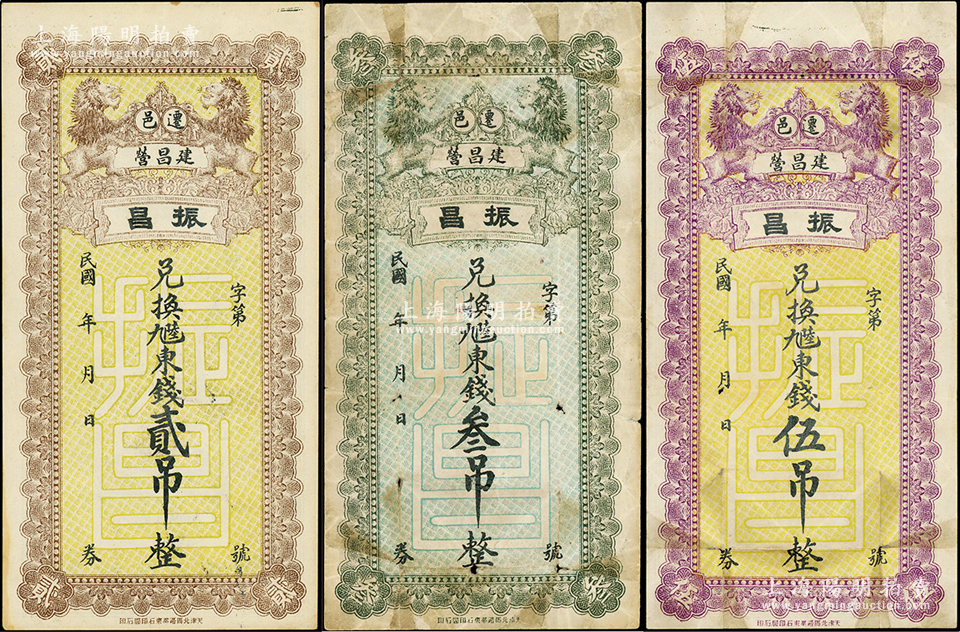 上海陽明拍賣
www.yangmingauction.com
貳 貳
遷邑
建昌營
振昌
字第 號
兌換東錢貳吊整
民國 年 月 日 券
貳 貳
叁 叁
遷邑
建昌營
振昌
字第 號
兌換東錢叁吊整
民國 年 月 日 券
叁 叁
上海陽明拍賣
www.yangmingauction.com
伍 伍
遷邑
建昌營
振昌
字第 號
兌換東錢伍吊整
民國 年 月 日 券
伍 伍
上海陽明拍賣
www.yangmingauction.com